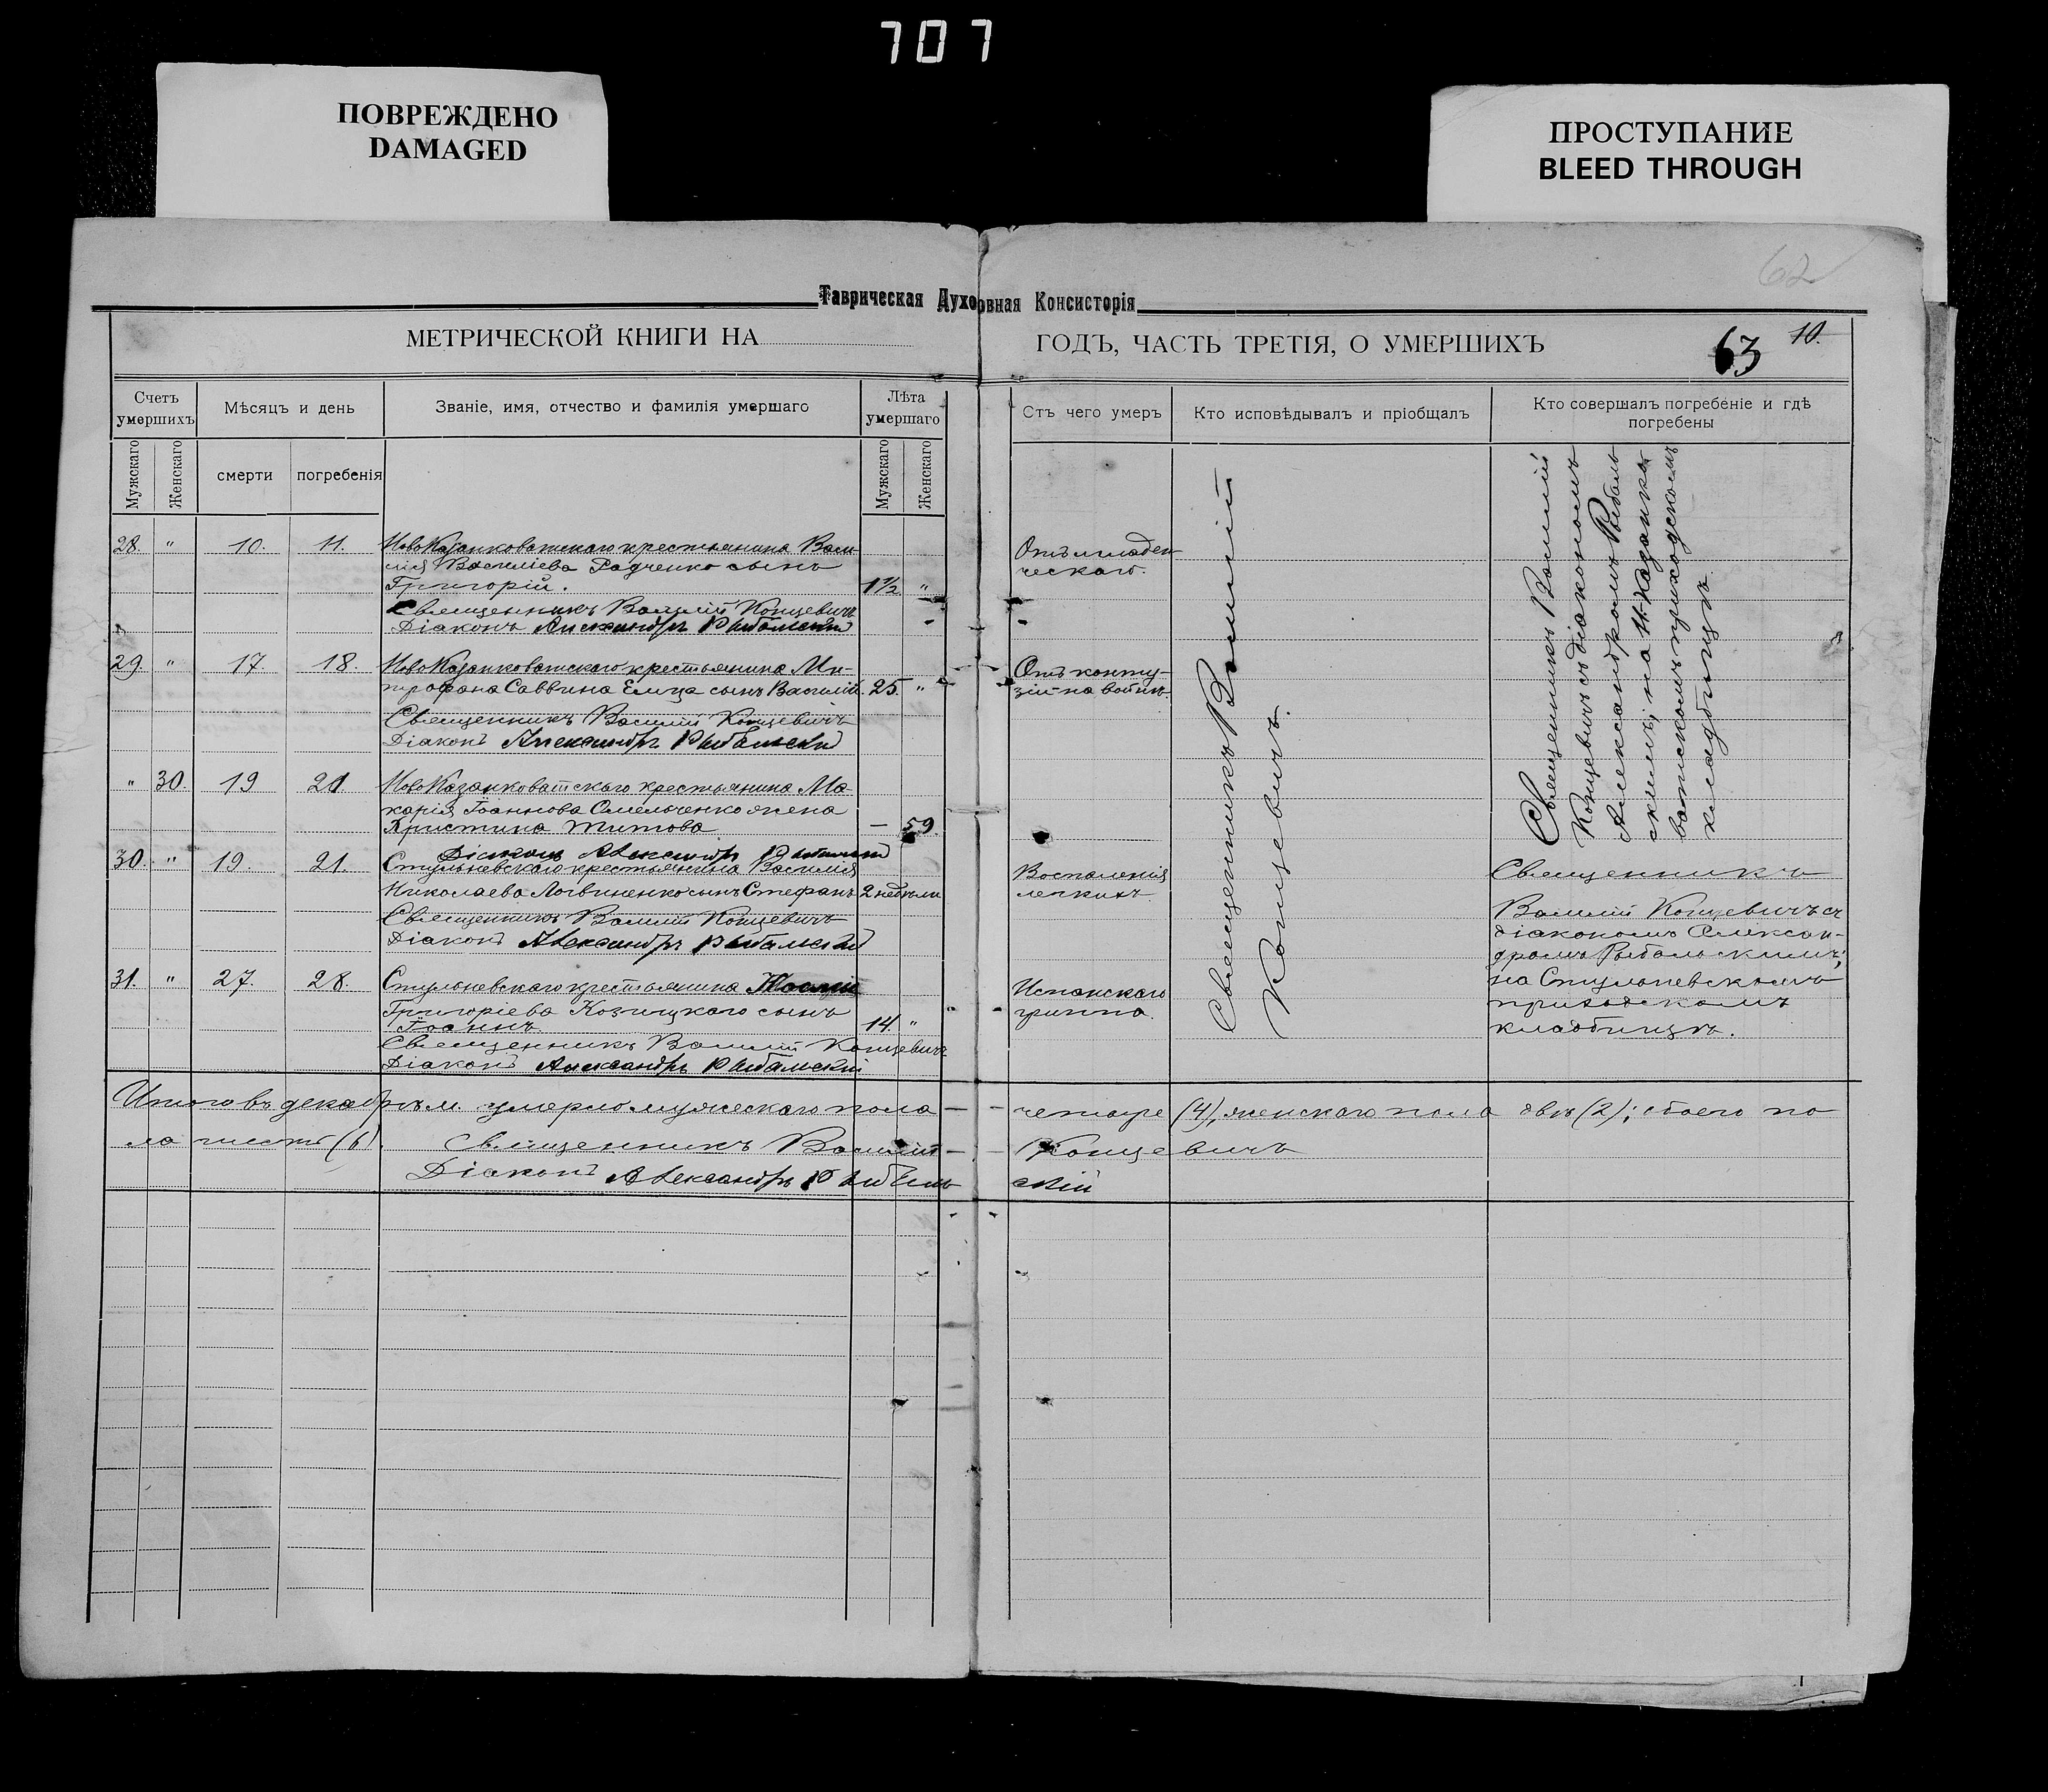 707
ПОВРЕЖДЕНО
DAMAGED
ПРОСТУПАНИЕ
BLEED THROUGH
62
Таврическая Духовная Консисторія
МЕТРИЧЕСКОЙ КНИГИ НА ГОДЪ, ЧАСТЬ ТРЕТІЯ, О УМЕРШИХЪ
63 10.
Счетъ умершихъ
Мѣсяцъ и день
Званіе, имя, отчество и фамилія умершаго
Лѣта умершаго
Стъ чего умеръ
Кто исповѣдывалъ и пріобщалъ
Кто совершалъ погребеніе и гдѣ погребены
Мужскаго
Женскаго
смерти
погребенія
Мужскаго
Женскаго
28. " 10. 11. НовоКазанковатскаго крестьянина Васи-
лія Василіева Радченко сынъ
Григорій. 1½ "
Отъ младен
ческаго.
Священникъ Василій Концевичъ
Діаконъ Александръ Рыбальскій
29. " 17. 18. НовоКазанковатскаго крестьянина Ми-
трофана Саввина Елица сынъ Василій. 25. "
Отъ конту-
зіи на войнѣ.
Священникъ Василій Концевичъ
Діаконъ Александръ Рыбальскій
" 30. 19 21 НовоКазанковатскаго крестьянина Ма-
карія Іоаннова Омельченко жена
Христина Титова — 59.
Діаконъ Александръ Рыбальскій
30. " 19. 21. Стульневскаго крестьянина Василія
Николаева Логвиненко сынъ Стефанъ 2 недѣли
Воспаленія
легкихъ
Священникъ Василій Концевичъ
Діаконъ Александръ Рыбальскій
31. " 27. 28. Стульневскаго крестьянина
Григоріева Козицкаго сынъ
Іоаннъ 14. "
Испанскаго
гриппа.
Священникъ Василій Концевичъ
Діаконъ Александръ Рыбальскій
Священникъ Василій
Концевичъ.
Священникъ Василій
Концевичъ съ діакономъ
Александромъ Рыбаль
скимъ; на Н-Казанко
ватскомъ приходскомъ
кладбищѣ.
Священникъ
Василій Концевичъ съ
діакономъ Алексан-
дромъ Рыбальскимъ;
на Стульневскомъ
приходскомъ
кладбищѣ.
Итого въ декабрѣ м. умерло мужескаго пола — четыре (4), женскаго пола двѣ (2); обоего по
ла шесть (6).
Священникъ Василій Концевичъ
Діаконъ Александръ Рыбальскій